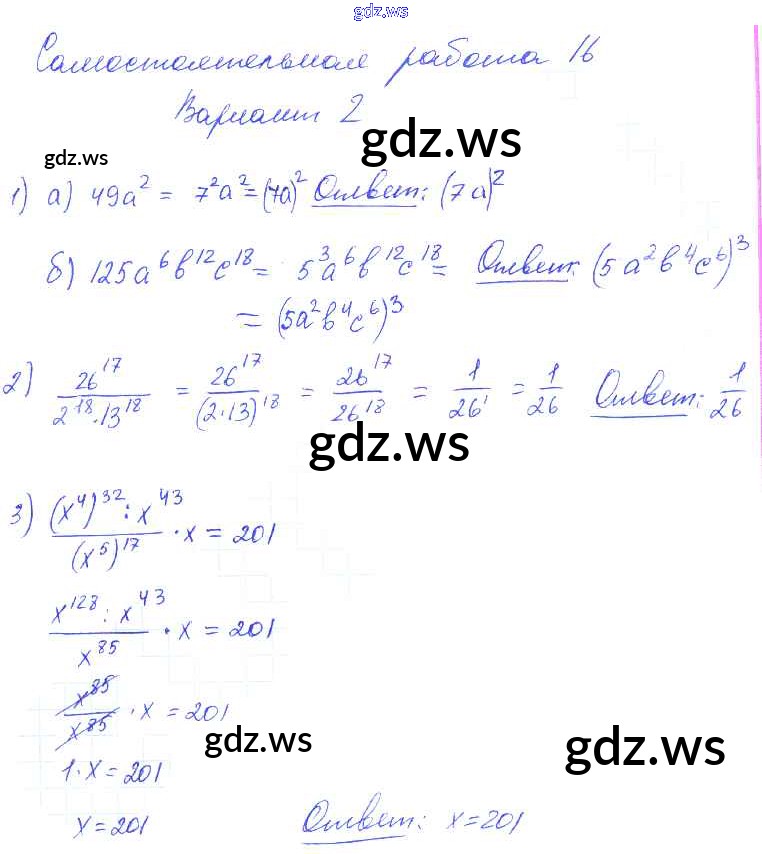 gdz.ws
Самостоятельная работа 16
Вариант 2
gdz.ws
gdz.ws
1) а) 49a² = 7²a² = (7a)² Ответ: (7a)²
б) 125a⁶b¹²c¹⁸ = 5³a⁶b¹²c¹⁸ = Ответ: (5a²b⁴c⁶)³
= (5a²b⁴c⁶)³
gdz.ws
2) 26¹⁷/(2¹⁸·13¹⁸) = 26¹⁷/(2·13)¹⁸ = 26¹⁷/26¹⁸ = 1/26¹ = 1/26 Ответ: 1/26
gdz.ws
3) ((x⁴)³² : x⁴³)/(x⁵)¹⁷ · x = 201
(x¹²⁸ : x⁴³)/x⁸⁵ · x = 201
x⁸⁵/x⁸⁵ · x = 201
gdz.ws
gdz.ws
1·x = 201
x = 201 Ответ: x = 201